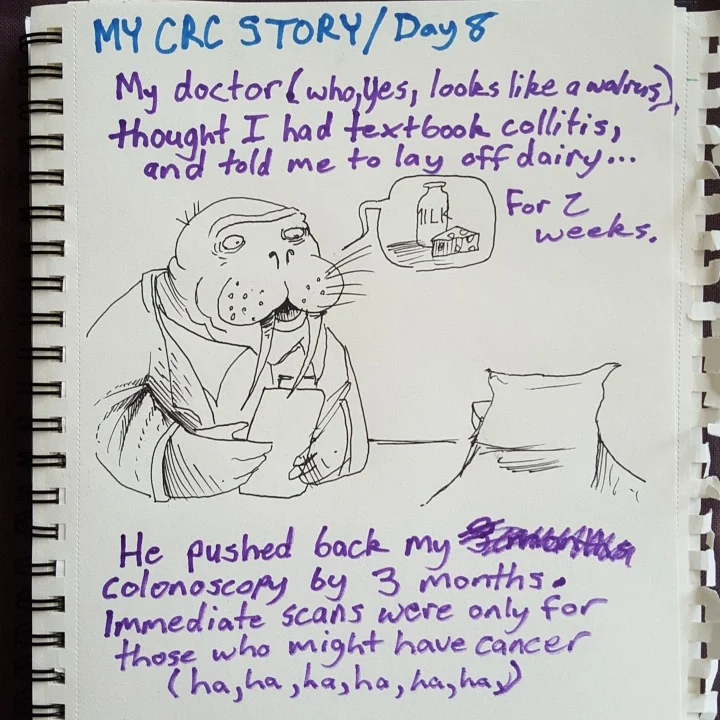 MY CRC STORY/Day 8
My doctor (who, yes, looks like a walrus),
thought I had textbook collitis,
and told me to lay off dairy...
For 2
weeks.
MILK
He pushed back my
colonoscopy by 3 months.
Immediate scans were only for
those who might have cancer
(ha, ha, ha, ha, ha, ha,)